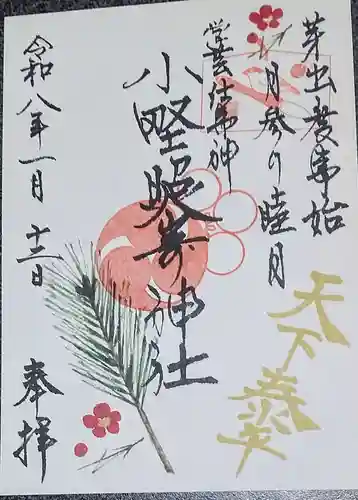 芽出度事始
月参り睦月
学芸結芽神
小野照崎神社
天下泰平
令和八年一月十三日
奉拝